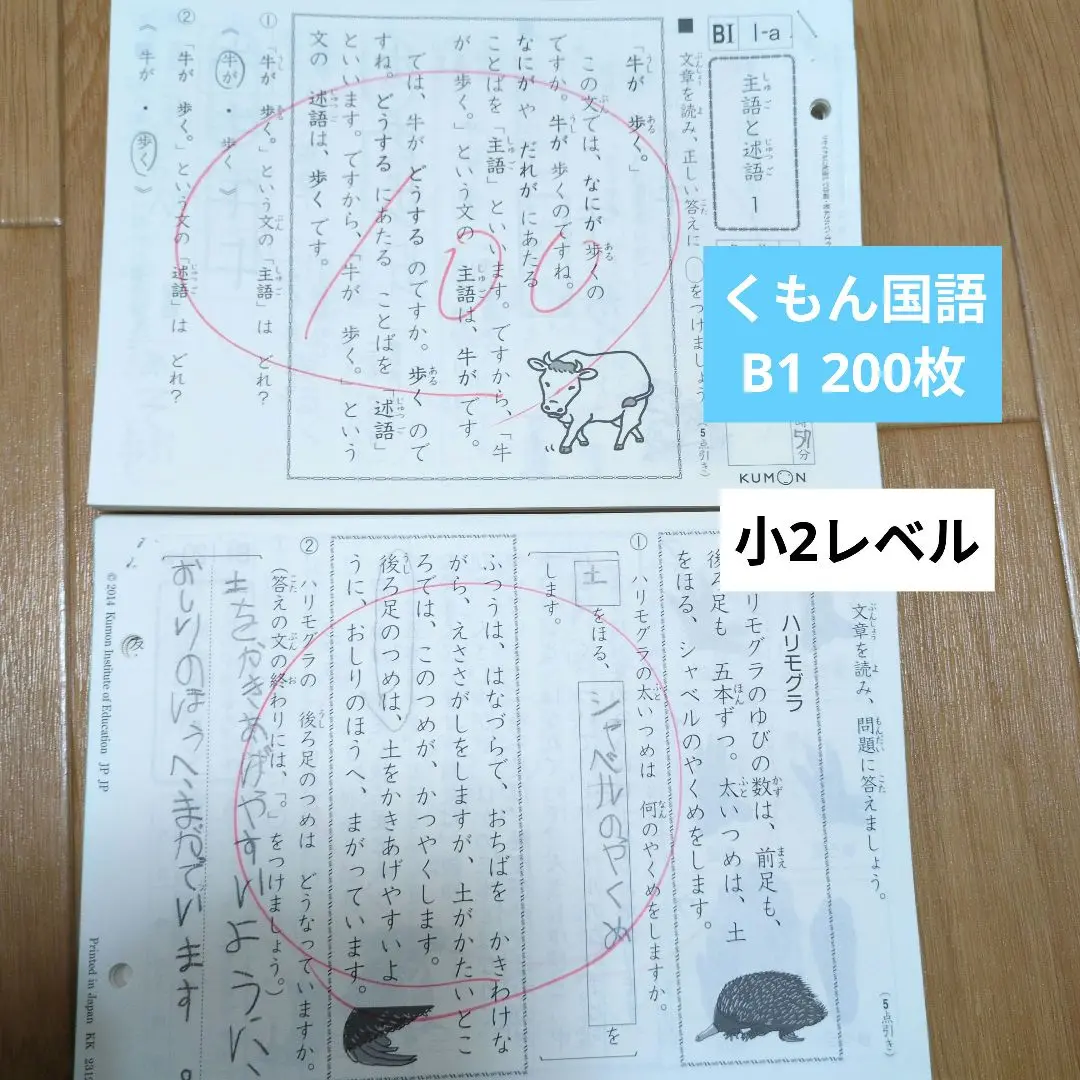 BI 1-a
主語と述語 1
■ 文章を読み、正しい答えに○をつけましょう。
(5点引き)
「牛が 歩く。」
この文では、なにが 歩くの
ですか。牛が 歩くのですね。
なにが や だれが にあたる
ことばを「主語」といいます。ですから、「牛
が 歩く。」という文の 主語は、牛が です。
では、牛が どうする のですか。歩く ので
すね。どうする にあたる ことばを「述語」
といいます。ですから、「牛が 歩く。」という
文の 述語は、歩く です。
① 「牛が 歩く。」という文の「主語」は どれ?
《 牛が ・ 歩く 》
② 「牛が 歩く。」という文の「述語」は どれ?
《 牛が ・ 歩く 》
100
くもん国語
B1 200枚
57分
KUMON
小2レベル
文章を読み、問題に答えましょう。
(5点引き)
ハリモグラ
リモグラのゆびの数は、前足も、
後ろ足も 五本ずつ。太いつめは、土
をほる、シャベルのやくめをします。
① ハリモグラの太いつめは 何のやくめをしますか。
土をほる、シャベルのやくめを
します。
ふつうは、はなづらで、おちばを かきわけな
がら、えささがしをしますが、土がかたいとこ
ろでは、このつめが、かつやくします。
後ろ足のつめは、土をかきあげやすいよ
うに、おしりのほうへ、まがっています。
② ハリモグラの 後ろ足のつめは どうなっていますか。
(答えの文の終わりには、「。」をつけましょう。)
土をかきあげやすいように、
おしりのほうへまがています。
© 2014 Kumon Institute of Education JP JP
Printed in Japan KK 2312